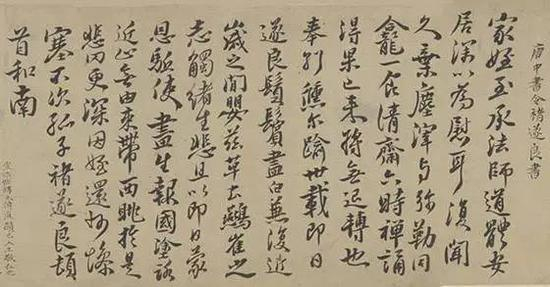 唐中書令褚遂良書
家姪至承法師道體安
居深以為慰耳復聞
久棄塵滓與弥勒同
龕一食清齋六時禪誦
得果已來將無退轉也
奉別倏尔踰卅載即日
遂良鬚鬢盡白兼復近
歲之間嬰茲草土鷰雀之
志觸緒生悲且以即日蒙
恩駈使盡生報國塗路
近止無由束帶西眺於悒
悲罔更深因姪還州慘
塞不次孤子褚遂良頓
首和南